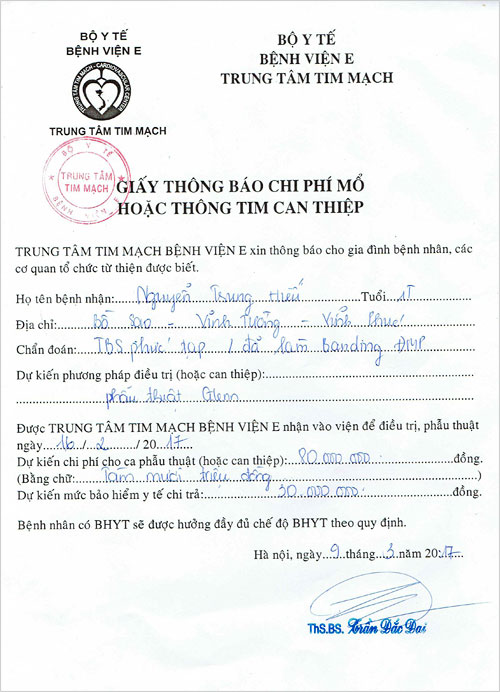 BỘ Y TẾ
BỆNH VIỆN E
TRUNG TÂM TIM MẠCH - CARDIOVASCULAR CENTER
TRUNG TÂM TIM MẠCH
BỘ Y TẾ
BỆNH VIỆN E
TRUNG TÂM TIM MẠCH
BỘ Y TẾ
TRUNG TÂM
TIM MẠCH
BỆNH VIỆN E
GIẤY THÔNG BÁO CHI PHÍ MỔ
HOẶC THÔNG TIM CAN THIỆP
TRUNG TÂM TIM MẠCH BỆNH VIỆN E xin thông báo cho gia đình bệnh nhân, các
cơ quan tổ chức từ thiện được biết.
Họ tên bệnh nhân: Nguyễn Trung Hiếu Tuổi 1T
Địa chỉ: Bồ Sao - Vĩnh Tường - Vĩnh Phúc
Chẩn đoán: TBS phức tạp / đã làm Banding ĐMP
Dự kiến phương pháp điều trị (hoặc can thiệp):
phẫu thuật Glenn
Được TRUNG TÂM TIM MẠCH BỆNH VIỆN E nhận vào viện để điều trị, phẫu thuật
ngày 16 / 2 / 2017
Dự kiến chi phí cho ca phẫu thuật (hoặc can thiệp): 80.000.000 đồng.
(Bằng chữ: Tám mươi triệu đồng )
Dự kiến mức bảo hiểm y tế chi trả: 30.000.000 đồng.
Bệnh nhân có BHYT sẽ được hưởng đầy đủ chế độ BHYT theo quy định.
Hà nội, ngày 9 tháng 3 năm 2017
ThS.BS. Trần Đắc Đại